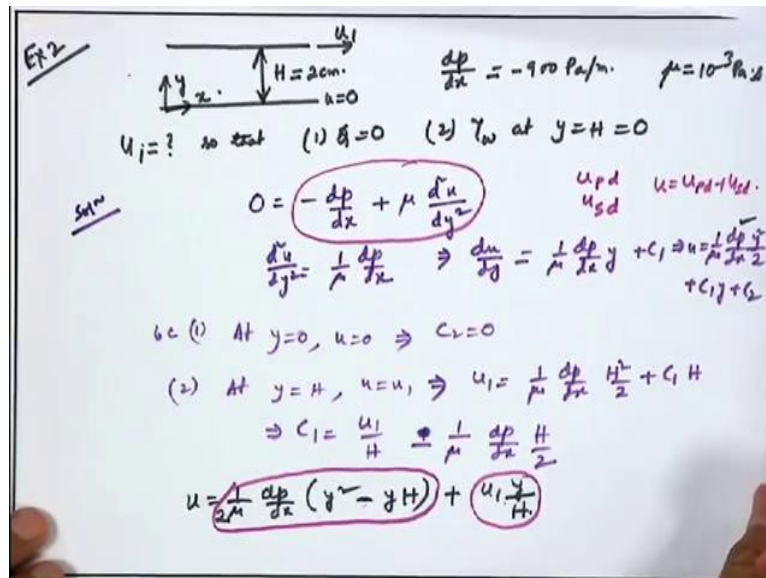 Ex 2
u₁
H = 2cm.
y
x
u=0
dp/dx = -900 Pa/m. μ=10⁻³ Pa·s
u₁ = ? so that (1) Q=0 (2) τw at y=H =0
Solⁿ
0 = - dp/dx + μ d²u/dy²
u_pd
u_sd
u= u_pd + u_sd.
d²u/dy² = 1/μ dp/dx ⇒ du/dy = 1/μ dp/dx y + C₁ ⇒ u = 1/μ dp/dx y²/2
+ C₁y + C₂
bc (1) At y=0, u=0 ⇒ C₂=0
(2) At y=H, u=u₁ ⇒ u₁ = 1/μ dp/dx H²/2 + C₁ H
⇒ C₁ = u₁/H - 1/μ dp/dx H/2
u = 1/2μ dp/dx (y² - yH) + u₁ y/H.